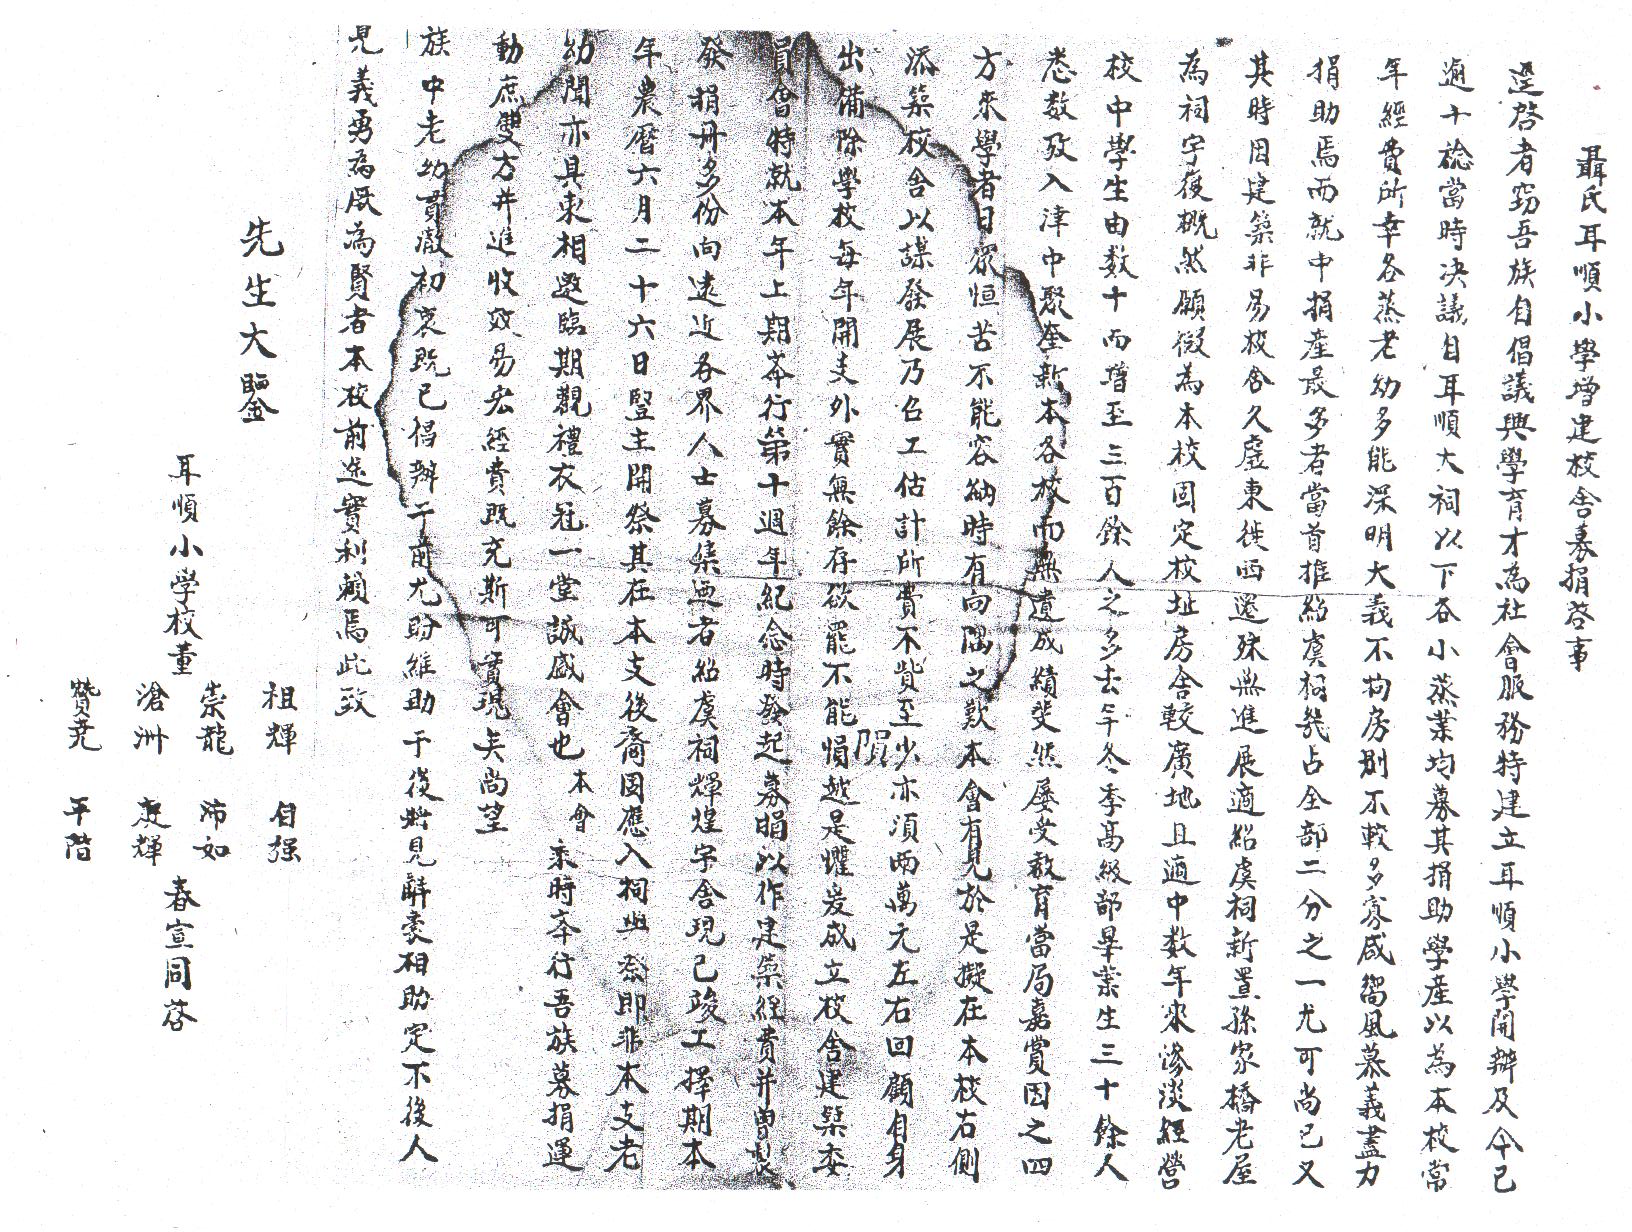 聶氏耳順小學增建校舍募捐啓事
逕啓者窃吾族自倡議興學育才為社會服務特建立耳順小學開辦及今已
逾十稔當時决議自耳順大祠以下各小蒸業均募其捐助學産以為本校常
年經費所幸各蒸老幼多能深明大義不拘房劃不較多寡咸嚮風慕義盡力
捐助焉而就中捐産最多者當首推紹虞祠幾占全部二分之一尤可尚已又
其時因建築非易校舍久虛東徙西遷殊無進展適紹虞祠新置孫家橋老屋
為祠宇復概然願假為本校固定校址房舍較廣地且適中数年來滲淡經營
校中學生由数十而增至三百餘人之多去年冬季高級部畢業生三十餘人
悉数攷入津中聚奎新本各校而無遺成績斐然屡受教育當局嘉賞因之四
方來學者日眾恒苦不能容納時有向隅之歎本會有見於是擬在本校右側
添築校舍以謀發展乃召工估計所費不貲至少亦須兩萬元左右回顧自身
出備除學校每年開支外實無餘存欲罷不能愪越是懼爰成立校舍建築委
隕
員會特就本年上期举行第十週年紀念時發起募捐以作建築經費并曾製
發捐冊多份向遠近各界人士募集亟者紹虞祠輝煌宇舍現已竣工擇期本
年農曆六月二十六日豎主開祭其在本支後裔固應入祠與祭即非本支老
幼聞亦具柬相邀臨期觀禮衣冠一堂誠盛會也本會乘時夲行吾族募捐運
動庶雙方并進收效易宏經費既充斯可實現矣尚望
族中老幼貫澈初衷既已倡辦于前尤盼維助于後將見解囊相助定不後人
見義勇為厥為賢者本校前途實利賴焉此致
先生大鑒
耳順小学校董
祖輝 自强
崇龍 沛如
滄洲 庭輝
贊堯 平階
春宣同啓